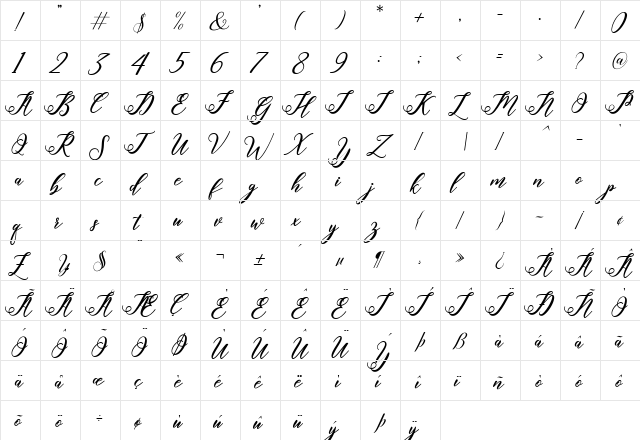 ! " # $ % & ' ( ) * + , - . / 0
1 2 3 4 5 6 7 8 9 : ; < = > ? @
A B C D E F G H I J K L M N O P
Q R S T U V W X Y Z [ \ ] ^ _ `
a b c d e f g h i j k l m n o p
q r s t u v w x y z { | } ~ / ¢
£ ¥ § ¨ « ¬ ± ´ µ ¶ · » ¿ À Á Â
Ã Ä Å Æ Ç È É Ê Ë Ì Í Î Ï Ð Ñ Ò
Ó Ô Õ Ö Ø Ù Ú Û Ü Ý þ ß à á â ã
ä å æ ç è é ê ë ì í î ï ñ ò ó ô
õ ö ÷ ø ù ú û ü ý þ ÿ